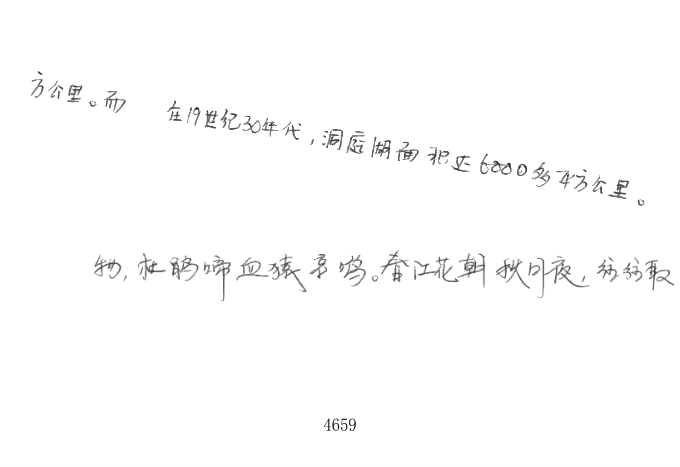 方公里。而 在19世纪30年代,洞庭湖面积达6000多平方公里。
物,杜鹃啼血猿哀鸣。春江花朝秋月夜,往往取
4659